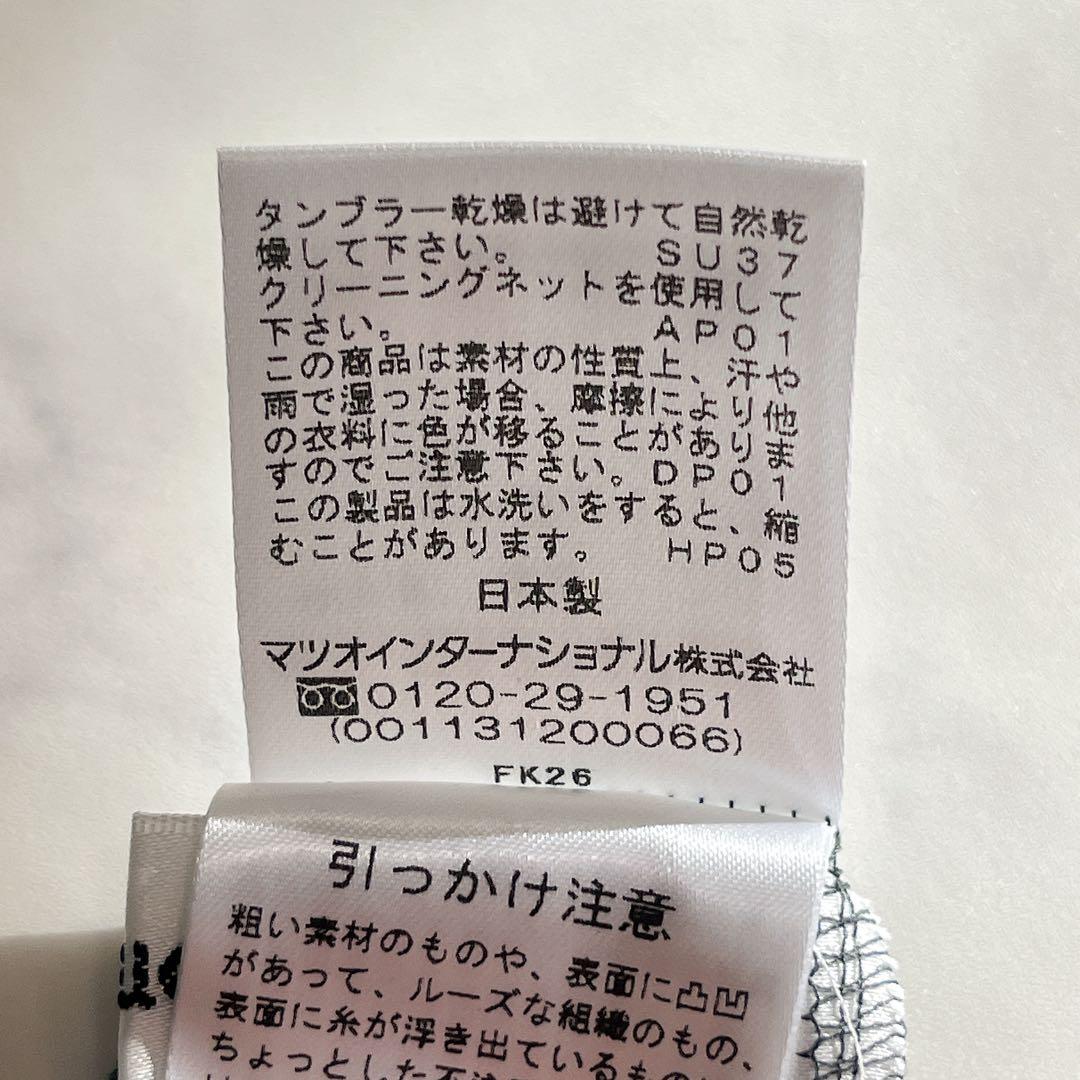 タンブラー乾燥は避けて自然乾
燥して下さい。 SU37
クリーニングネットを使用して
下さい。 AP01
この商品は素材の性質上、汗や
雨で湿った場合、摩擦により他
の衣料に色が移ることがありま
すのでご注意下さい。DP01
この製品は水洗いをすると、縮
むことがあります。 HP05
日本製
マツオインターナショナル株式会社
0120-29-1951
(001131200066)
FK26
引っかけ注意
粗い素材のものや、表面に凸凹
があって、ルーズな組織のもの、
表面に糸が浮き出ているもの
ちょっとした不注